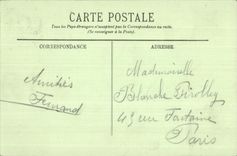 CARTE POSTALE
Tous les Pays étrangers n'acceptent pas la Correspondance au recto.
(Se renseigner à la Poste).
CORRESPONDANCE
ADRESSE
Amitiés
Fernand
Mademoiselle
Blanche
49 rue Fontaine
Paris